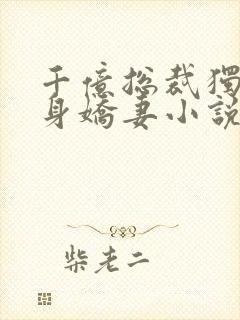 千億总裁獨
身嬌妻小說
柴老二